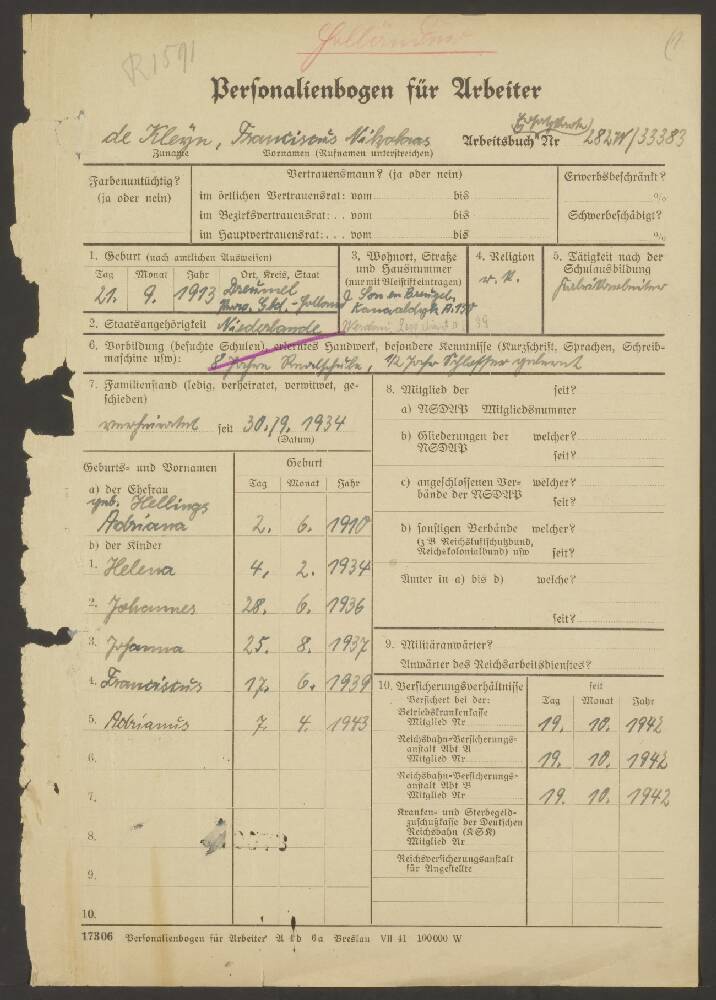 Holländer
R1591
Personalienbogen für Arbeiter
de Kleyn, Franciscus Nikolaas Arbeitsbuch Nr 282W/33383
Zuname Vornamen (Rufnamen unterstreichen)
Farbenuntüchtig?
(ja oder nein)
Vertrauensmann? (ja oder nein)
im örtlichen Vertrauensrat: vom bis
im Bezirksvertrauensrat: . . vom bis
im Hauptvertrauensrat: . . . vom bis
Erwerbsbeschränkt?
%
Schwerbeschädigt?
%
1. Geburt (nach amtlichen Ausweisen)
Tag Monat Jahr Ort, Kreis, Staat
21. 9. 1913 Dreumel
2. Staatsangehörigkeit Niederlande
3. Wohnort, Straße
und Hausnummer
(nur mit Bleistift eintragen)
Son en Breugel,
Kanaaldijk A.150
4. Religion
r. k.
5. Tätigkeit nach der
Schulausbildung
6. Vorbildung (besuchte Schulen), erlerntes Handwerk, besondere Kenntnisse (Kurzschrift, Sprachen, Schreib-
maschine usw):
8 Jahre Realschule, 1/2 Jahr Schlosser gelernt
7. Familienstand (ledig, verheiratet, verwitwet, ge-
schieden)
verheiratet seit 30./9. 1934
(Datum)
Geburts- und Vornamen Geburt
Tag Monat Jahr
a) der Ehefrau
geb. Hellings
Adriana 2. 6. 1910
b) der Kinder
1. Helena 4. 2. 1934
2. Johannes 28. 6. 1936
3. Johanna 25. 8. 1937
4. Franciskus 17. 6. 1939
5. Adrianus 7. 4. 1943
6.
7.
8.
9.
10.
8. Mitglied der seit?
a) NSDAP Mitgliedsnummer
b) Gliederungen der welcher?
NSDAP
seit?
c) angeschlossenen Ver- welcher?
bände der NSDAP
seit?
d) sonstigen Verbände welcher?
(z B Reichsluftschutzbund,
Reichskolonialbund) usw seit?
Ämter in a) bis d) welche?
seit?
9. Militäranwärter?
Anwärter des Reichsarbeitsdienstes?
10. Versicherungsverhältnisse seit
Versichert bei der: Tag Monat Jahr
Betriebskrankenkasse
Mitglied Nr 19. 10. 1942
Reichsbahn-Versicherungs-
anstalt Abt A
Mitglied Nr 19. 10. 1942
Reichsbahn-Versicherungs-
anstalt Abt B
Mitglied Nr 19. 10. 1942
Kranken- und Sterbegeld-
zuschußkasse der Deutschen
Reichsbahn (KSK)
Mitglied Nr
Reichsversicherungsanstalt
für Angestellte
17306 Personalienbogen für Arbeiter A 4d 6a Breslau VII 41 100000 W